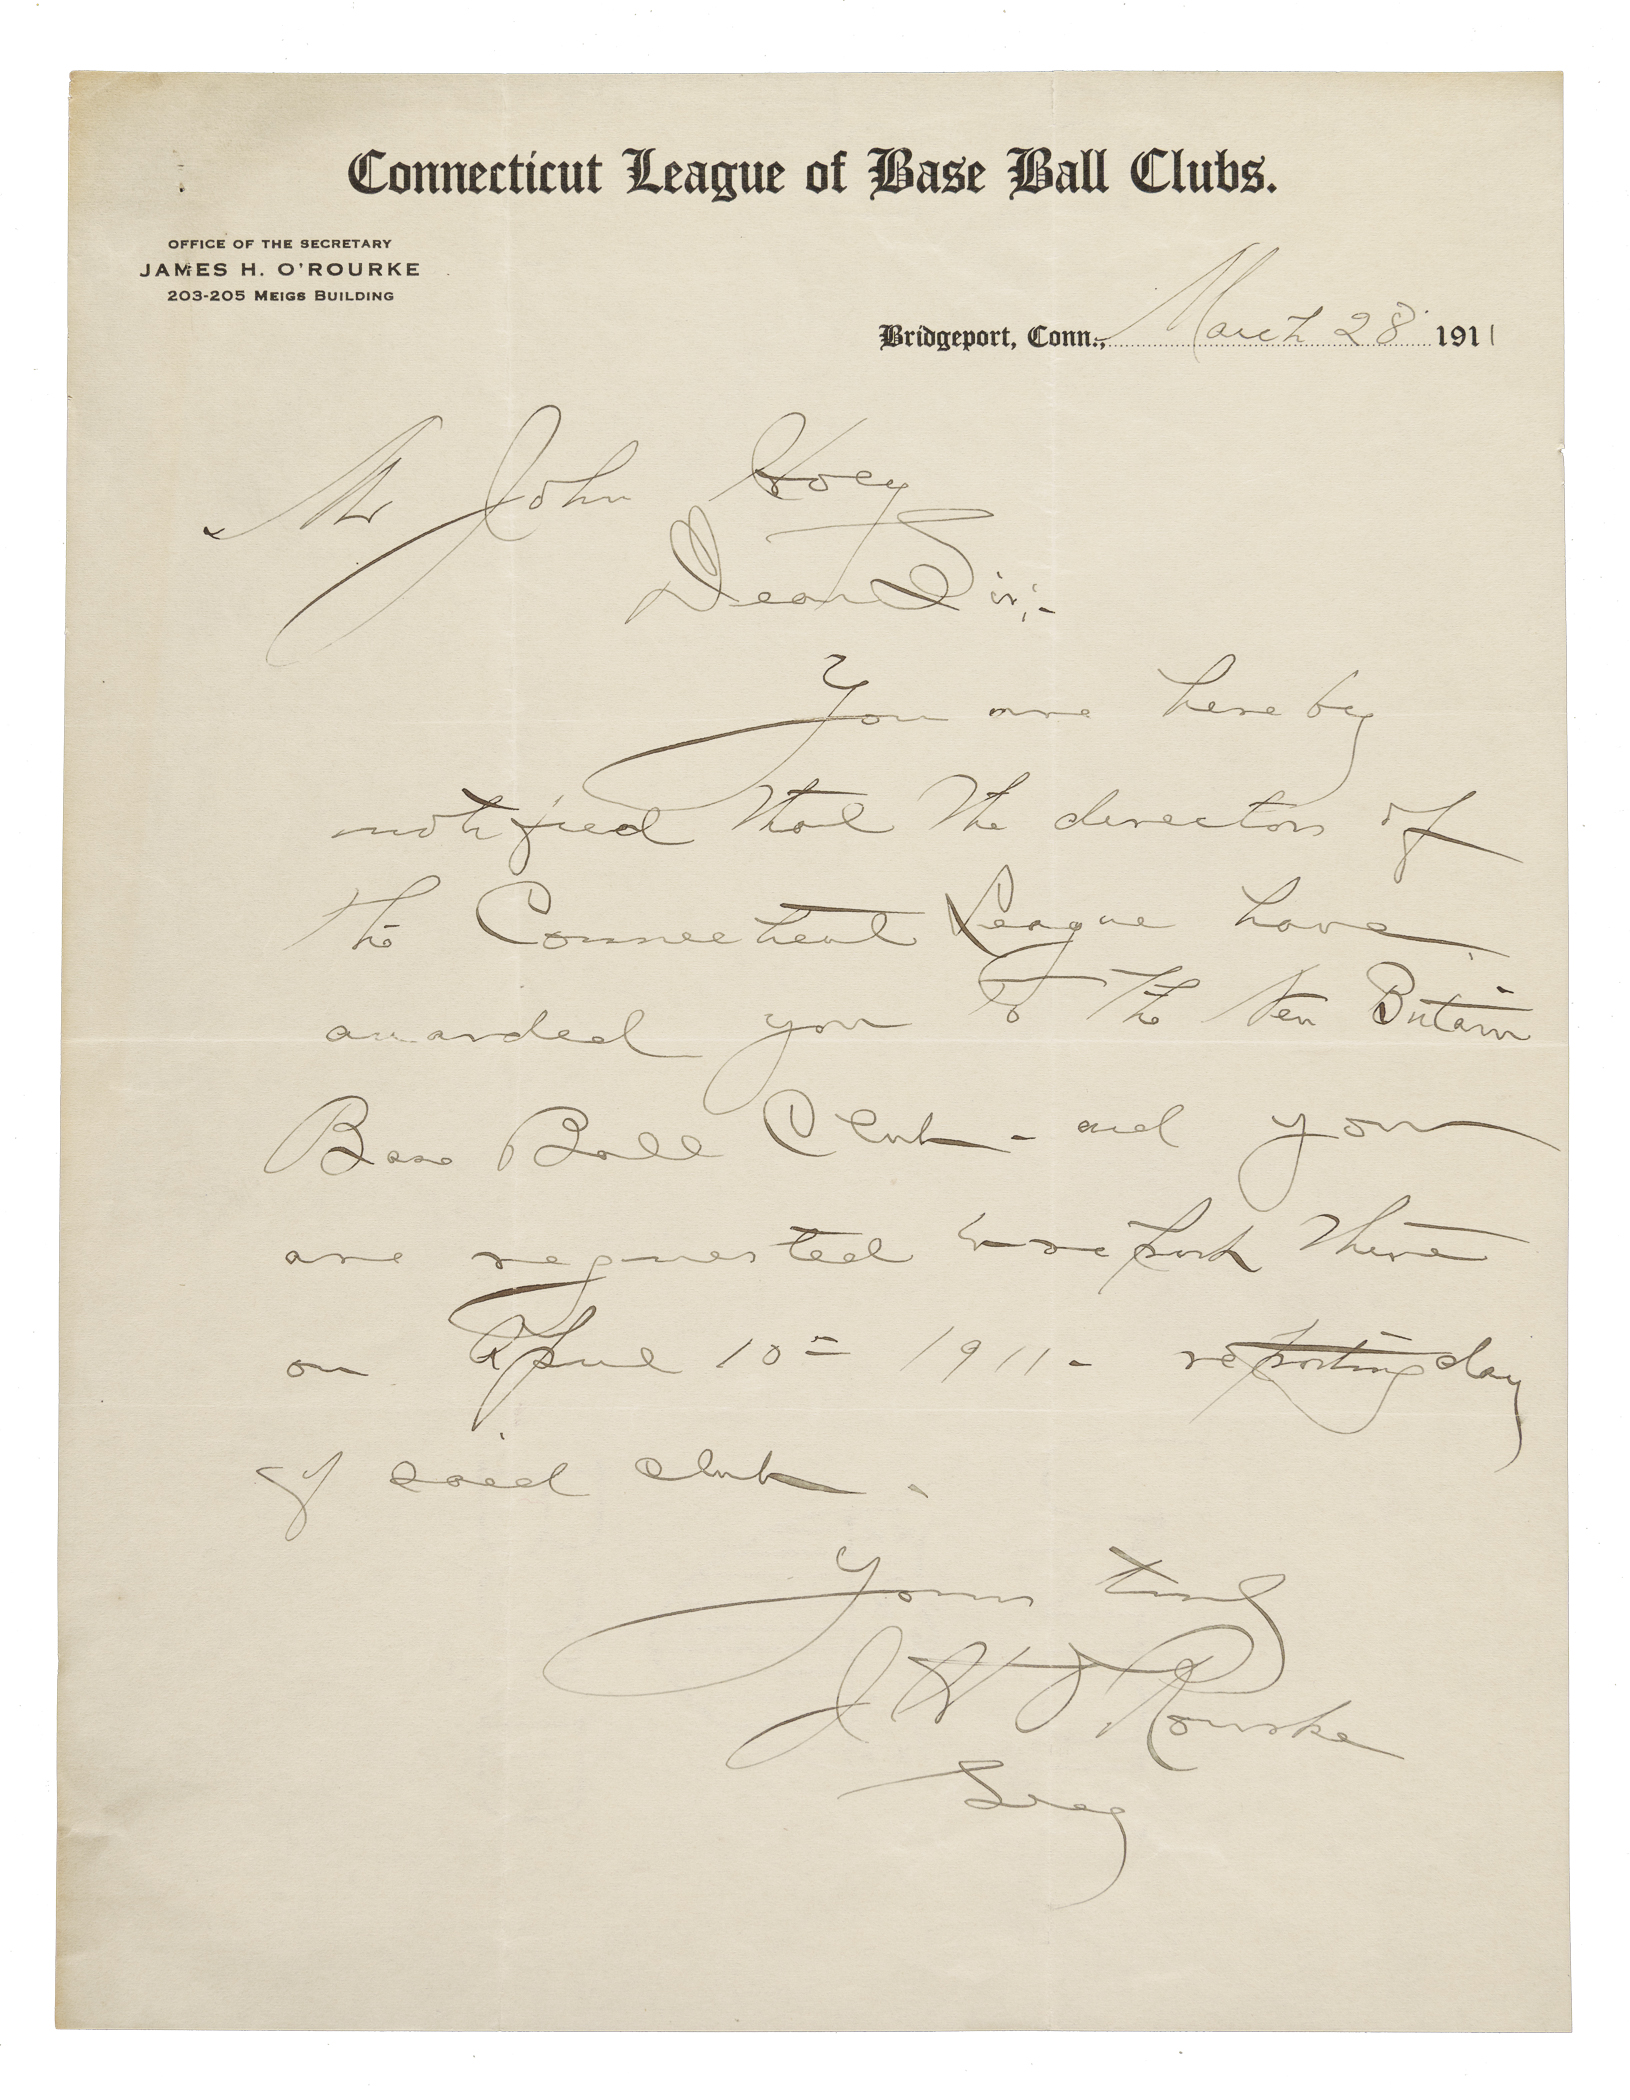 Connecticut League of Base Ball Clubs.
OFFICE OF THE SECRETARY
JAMES H. O'ROURKE
203-205 MEIGS BUILDING
Bridgeport, Conn., March 28 1911
Mr John Hoey
Dear Sir;-
You are hereby
notified that the directors of
the Connecticut League have
awarded you to the New Britain
Base Ball Club - and you
are requested to report there
on April 10= 1911- reporting day
of said club.
Yours truly
J H O'Rourke
Secy